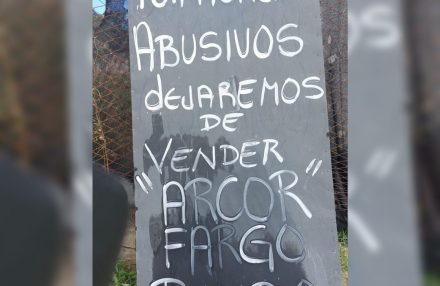 ABUSIVOS
DEJAREMOS
DE
VENDER
"ARCOR"
FARGO